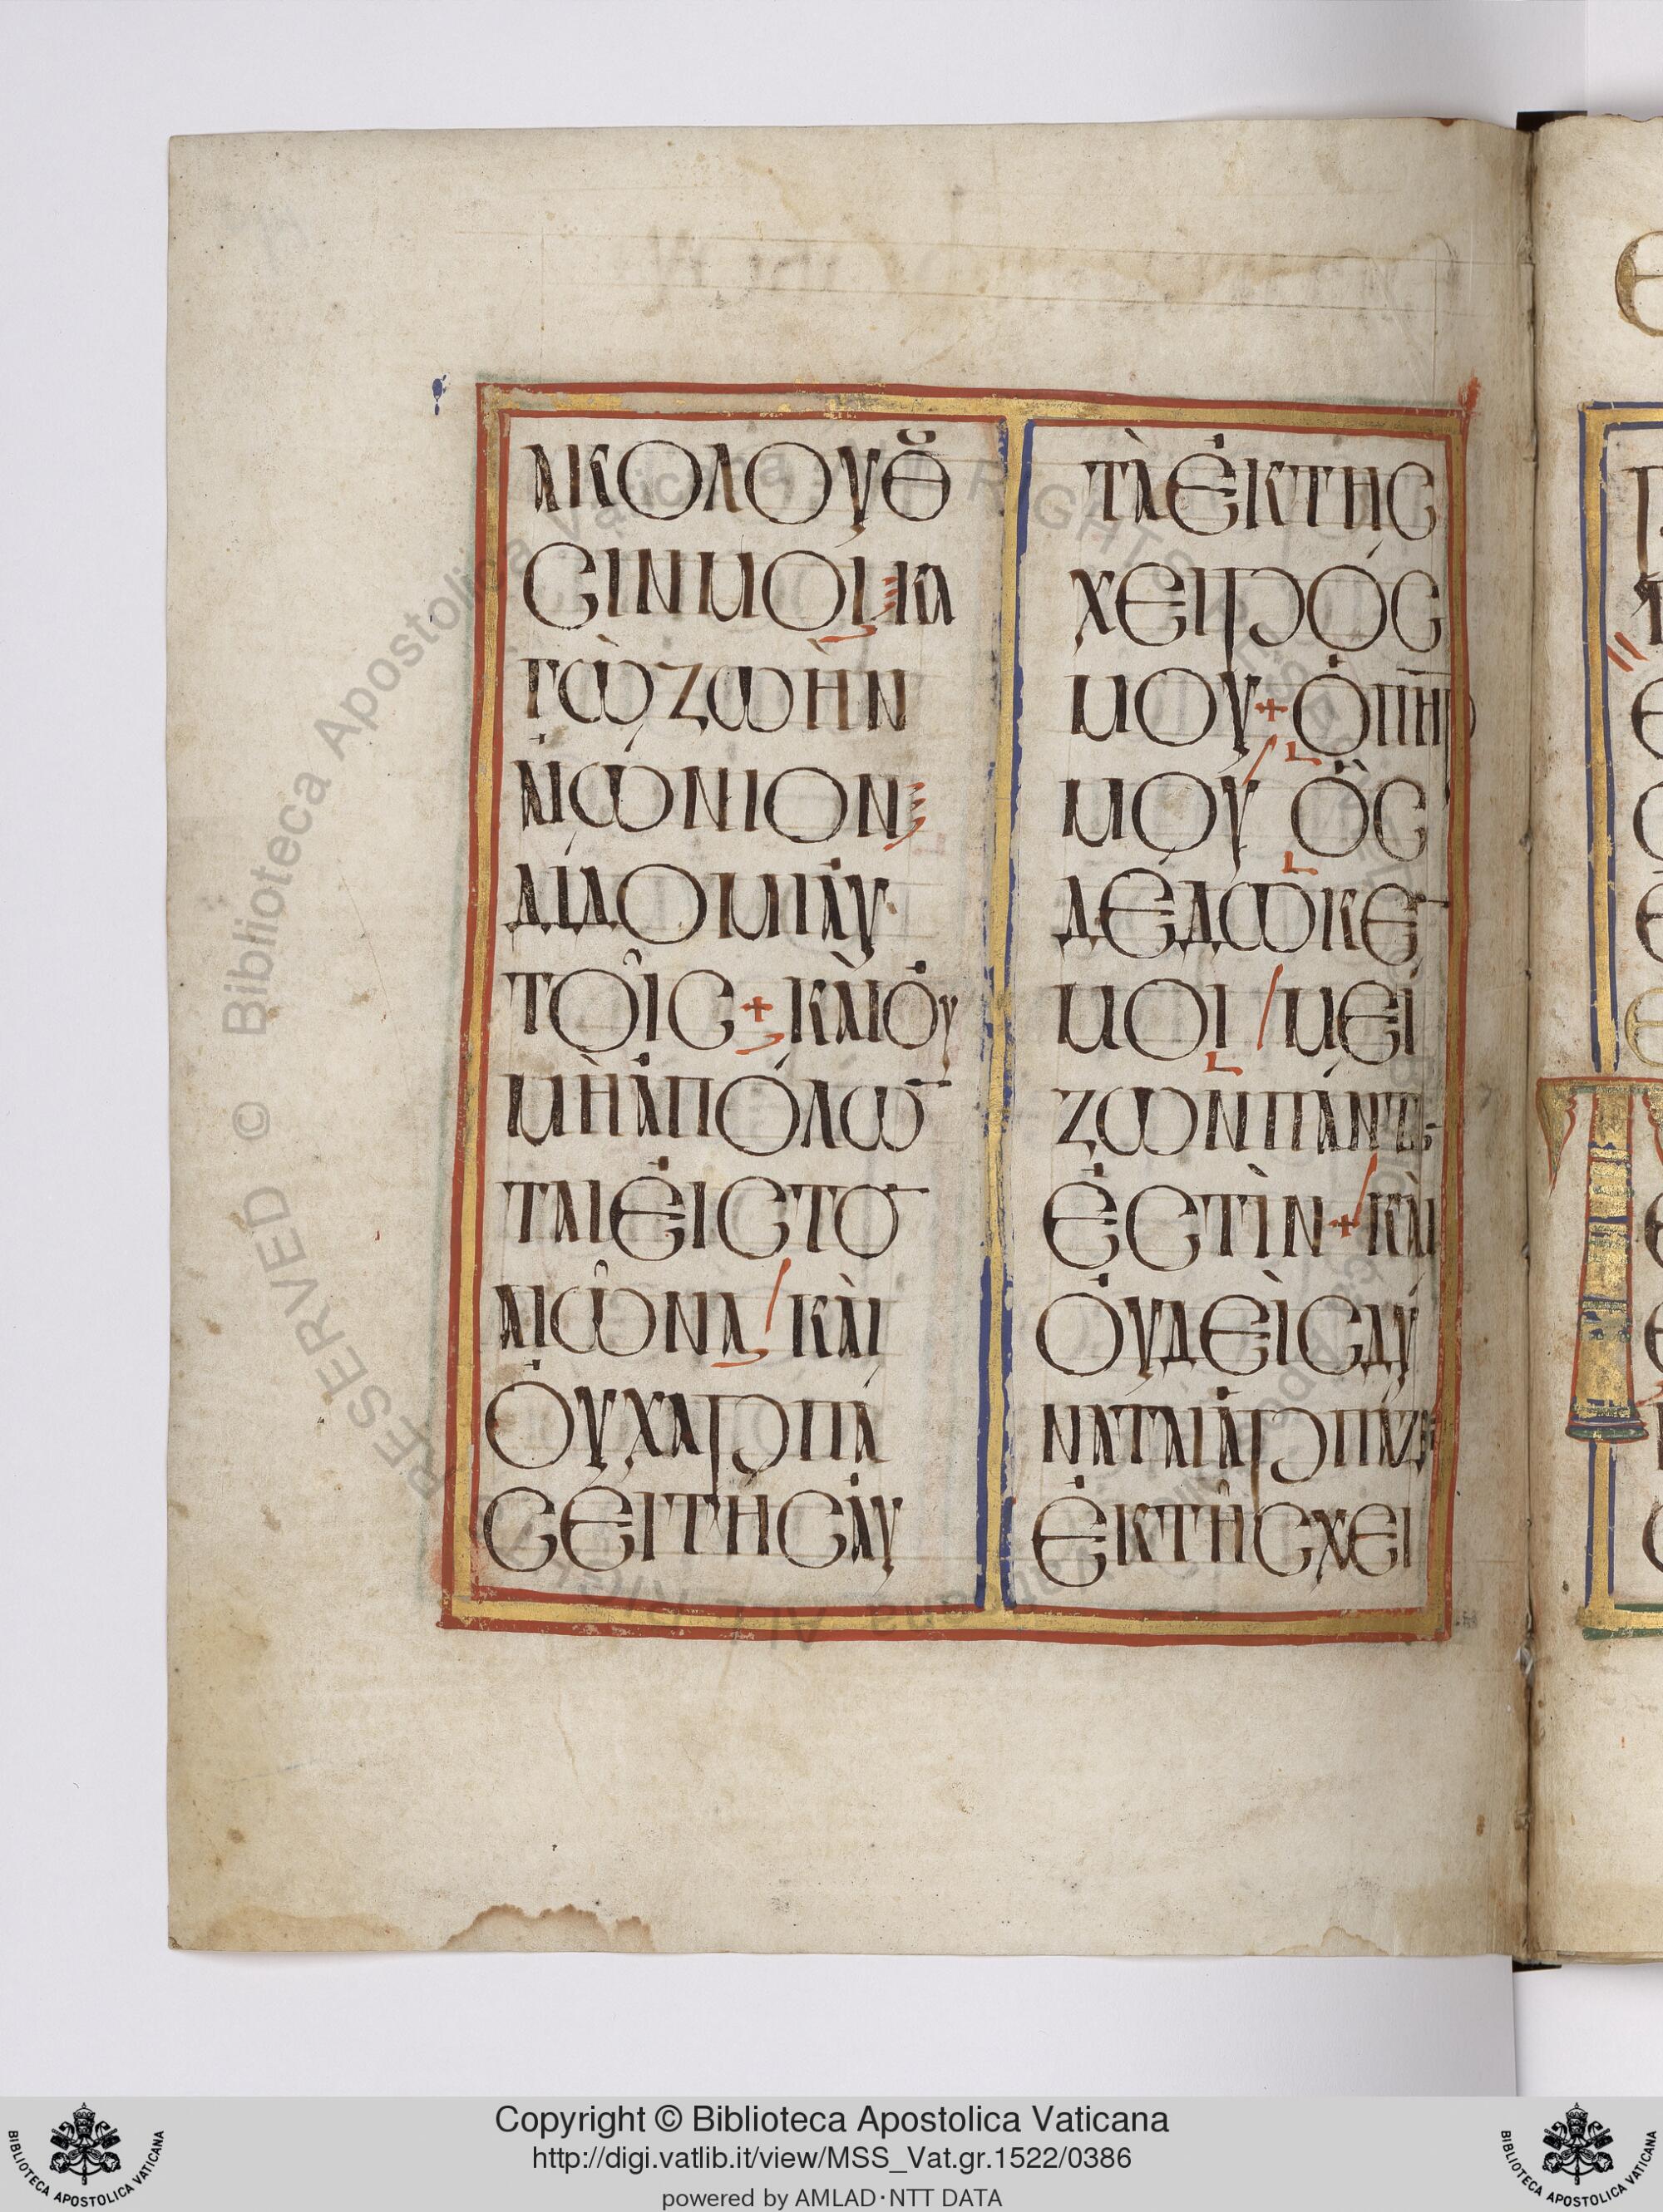 ΑΚΟΛΟΥΘȢ
CΙΝΜΟΙ ΚΑ
ΓῺΖΩῊΝ
ΑΙΩΝΙΟΝ
ΔΊΔΟΜΙἈΥ
ΤΟΙ͂C + ΚᾺΙΟΥ̓
ΜῊἈΠΌΛΩ̅
ΤΑΙἘΙCΤΟ̅
ΑΙΩ͂ΝΑ / ΚᾺΙ
ΟΥ̓ΧΑΡΠΆ
CΕΙΤῊCἈΥ
ΤᾺἘΚΤΗC
ΧΕΙΡΌC
ΜΟΥ + ὉΠΗ̅Ρ
ΜΟΥ / ὋC
ΔΈΔΩΚΕ̅
ΜΟΙ / ΜΕΊ
ΖΩΝΠΆΝΤ
ἘCΤῚΝ + ΚᾺΙ
ΟΥ̓ΔΕῚCΔΎ
ΝΑΤΑΙἉΡΠΆΖ
ἘΚΤΗ͂CΧΕΙ
Biblioteca Apostolica Vaticana ALL RIGHTS RESERVED ©
Copyright © Biblioteca Apostolica Vaticana
http://digi.vatlib.it/view/MSS_Vat.gr.1522/0386
powered by AMLAD·NTT DATA
BIBLIOTECA APOSTOLICA VATICANA
BIBLIOTECA APOSTOLICA VATICANA